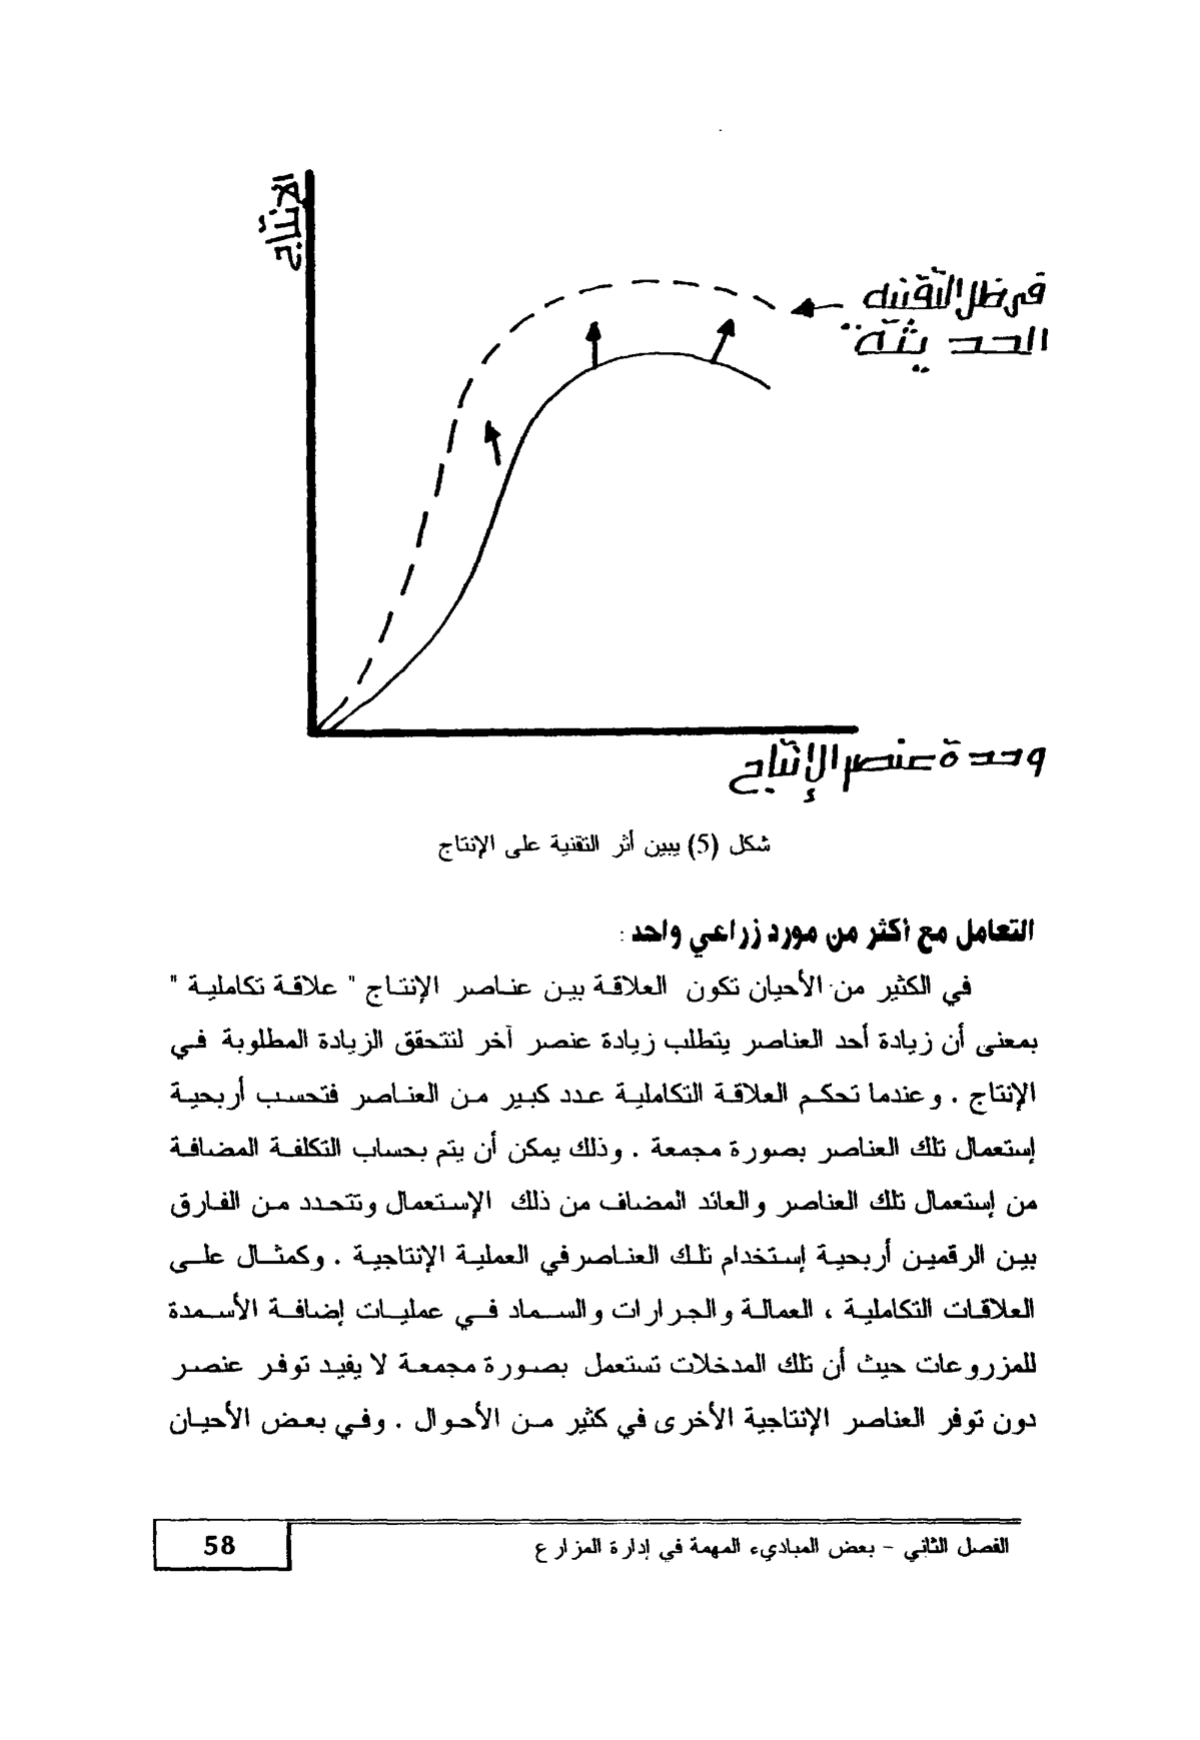 الانتاج
في ظل التقنية
الحديثة
وحدة عنصر الإنتاج
شكل (5) يبين أثر التقنية على الإنتاج
التعامل مع أكثر من مورد زراعي واحد :
في الكثير من الأحيان تكون العلاقة بين عناصر الإنتاج " علاقة تكاملية "
بمعنى أن زيادة أحد العناصر يتطلب زيادة عنصر آخر لتتحقق الزيادة المطلوبة في
الإنتاج . وعندما تحكم العلاقة التكاملية عدد كبير من العناصر فتحسب أربحية
إستعمال تلك العناصر بصورة مجمعة . وذلك يمكن أن يتم بحساب التكلفة المضافة
من إستعمال تلك العناصر والعائد المضاف من ذلك الإستعمال وتتحدد من الفارق
بين الرقمين أربحية إستخدام تلك العناصر في العملية الإنتاجية . وكمثال على
العلاقات التكاملية ، العمالة والجرارات والسماد في عمليات إضافة الأسمدة
للمزروعات حيث أن تلك المدخلات تستعمل بصورة مجمعة لا يفيد توفر عنصر
دون توفر العناصر الإنتاجية الأخرى في كثير من الأحوال . وفي بعض الأحيان
الفصل الثاني - بعض المباديء المهمة في إدارة المزارع
58